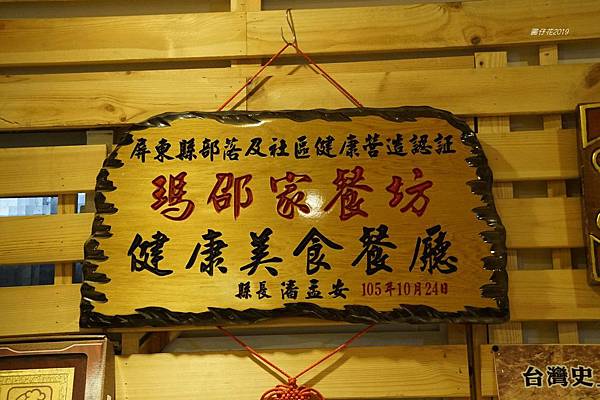 圓仔花2019
屏東縣部落及社區健康營造認証
瑪邵家餐坊
健康美食餐廳
縣長 潘孟安 105年10月24日
台灣史